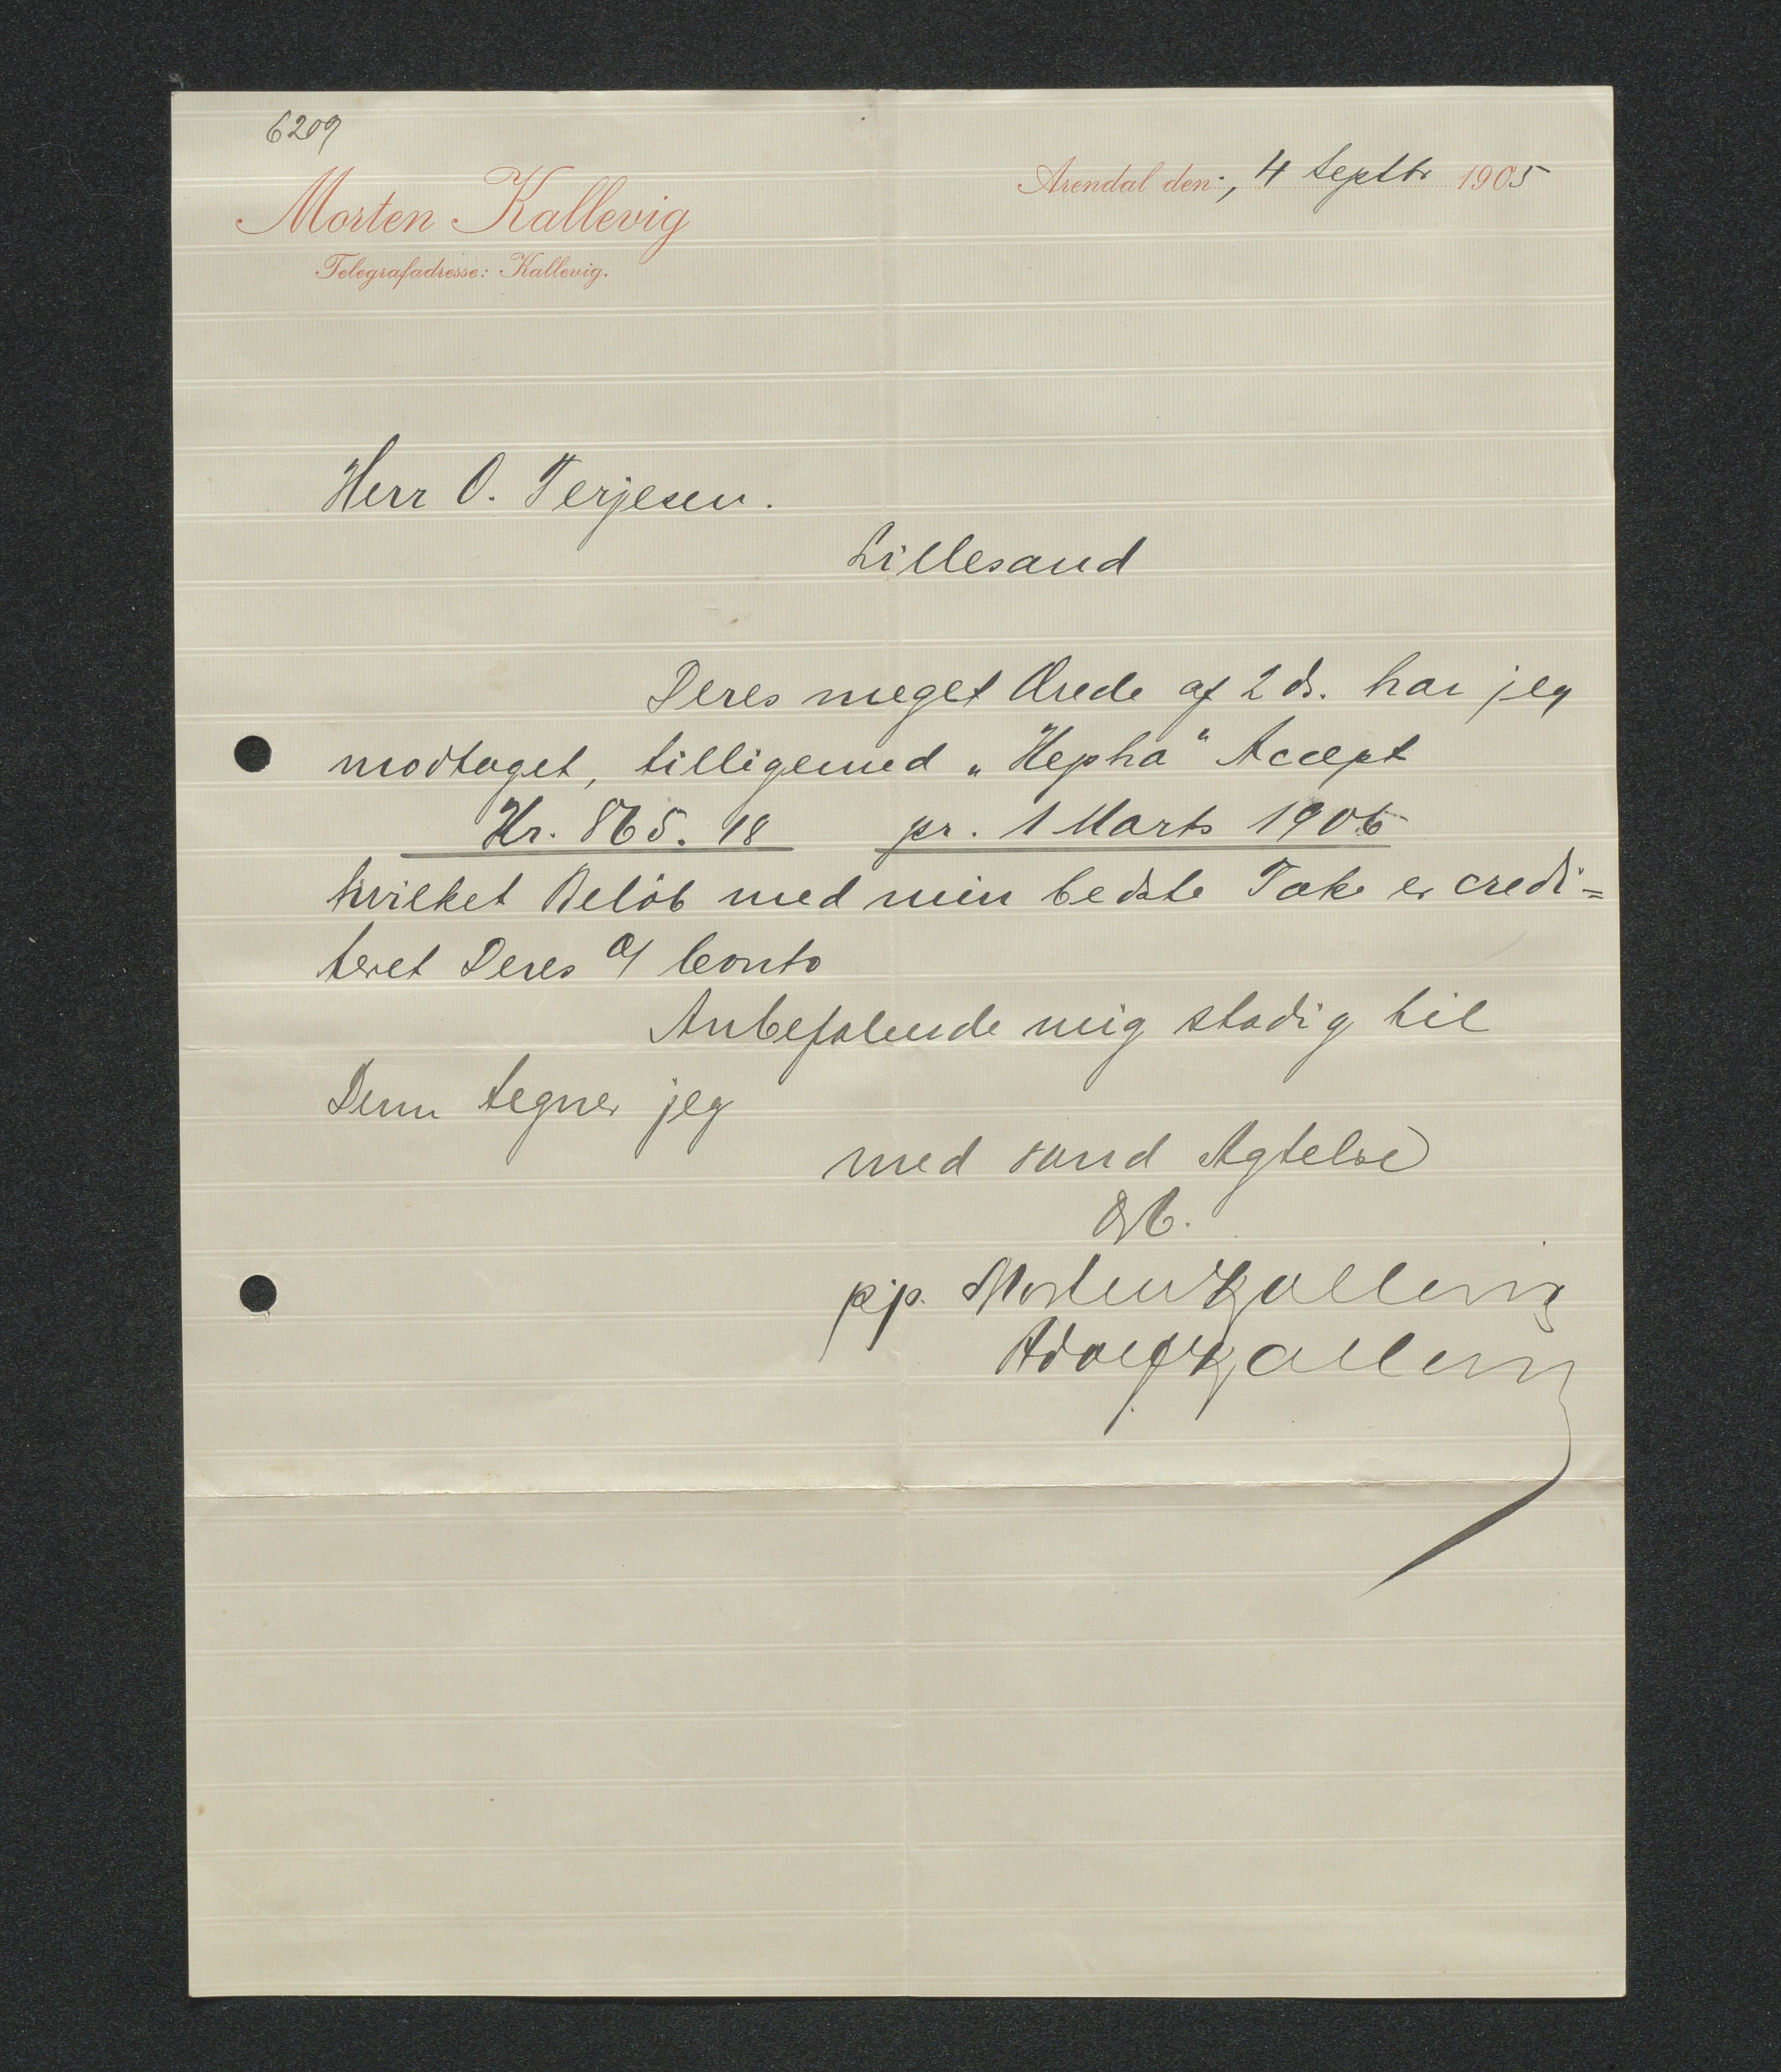 6209
Morten Kallevig
Telegrafadresse: Kallevig.
Arendal den:, 4 Septbr 1905
Herr O. Terjesen.
Lillesand
Deres meget Ærede af 2 ds. har jeg
modtaget, tilligemed „Hepha" Accept
Kr. 865. 18 pr. 1 Marts 1906
hvilket Beløb med min bedste Tak er credi=
teret Deres a/ Conto
Anbefalende mig stadig til
Dem tegner jeg
med sand Agtelse
pp. Morten Kallevig
Adolf Kallevig